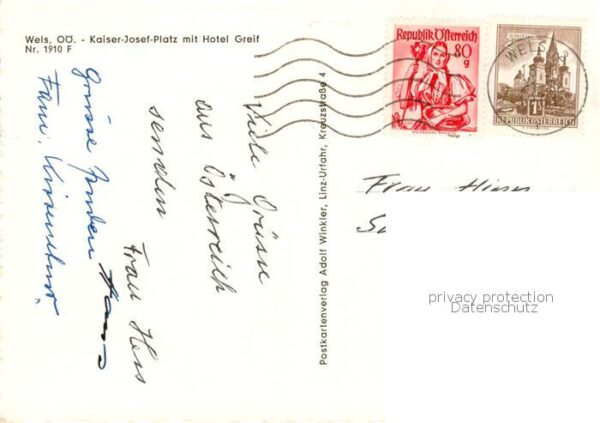 Wels, OÖ. - Kaiser-Josef-Platz mit Hotel Greif
Nr. 1910 F
Republik Österreich
80
g
WELS
1S
REPUBLIK ÖSTERREICH
Viele Grüsse
aus Österreich
senden
Frau Hess
Grüsse
Fam.
Postkartenverlag Adolf Winkler, Linz-Urfahr, Kreuzstraße 4
Frau
privacy protection
Datenschutz